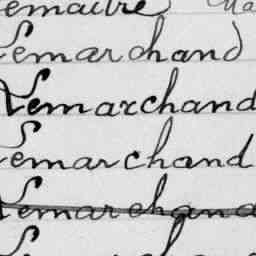 Lemaitre
Lemarchand
Lemarchand
Lemarchand
Lemarchand